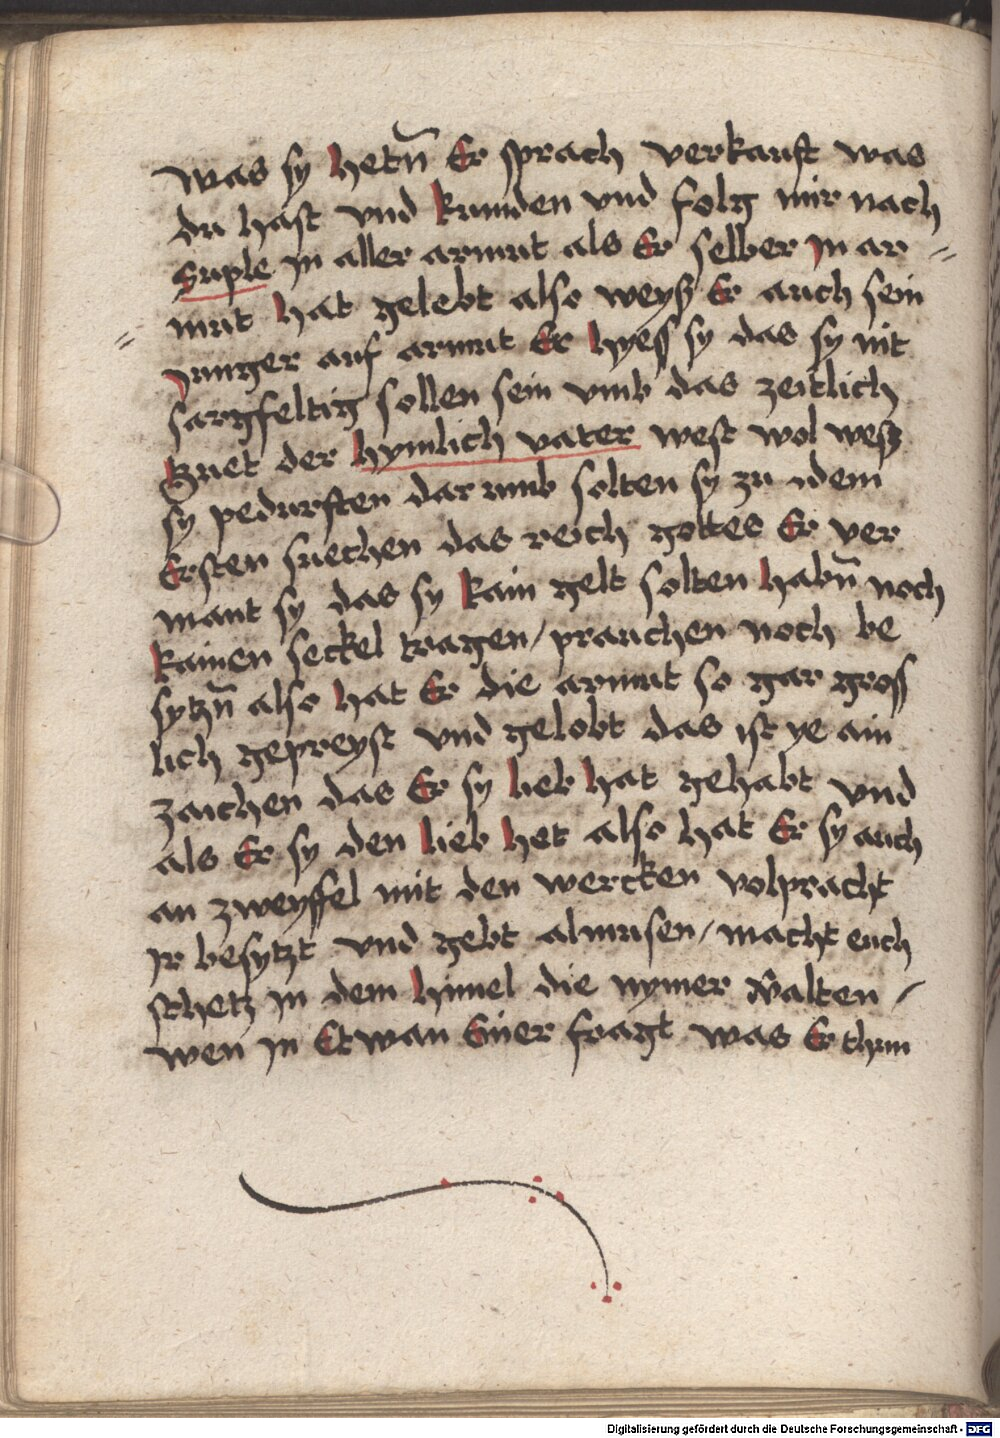 was sy hetn̄ Er sprach verkauft was
du hast vnd kumden vnd folg mir nach
Suple jn aller armut als Er selber jn ar =
mut hat gelebt also weyst Er auch sein
= Junger auf armut Er hyess sy das sy nit
sargfeltig sollen sein vmb das zeitlich
guet der hymlich vater west wol wesz
sy pedurften dar umb solten sy zu dem
Ersten suechen das reich gottes Er ver
mant sy das sy kain gelt solten habn̄ noch
kainen seckel tragen / prauchen noch be
sytzn̄ also hat Er die armut so gar gross
lich gepreyst vnd gelobt das ist ye ain
zaichen das Er sy lieb hat gehabt vnd
als Er sy den lieb het also hat Er sy auch
an zweyffel mit den wercken volpracht
jr besytzt vnd gebt almusen / macht euch
schetz jn dem himel die nymer v̄alten /
wen jn Etwan Einer fragt was Er thun
Digitalisierung gefördert durch die Deutsche Forschungsgemeinschaft - DFG